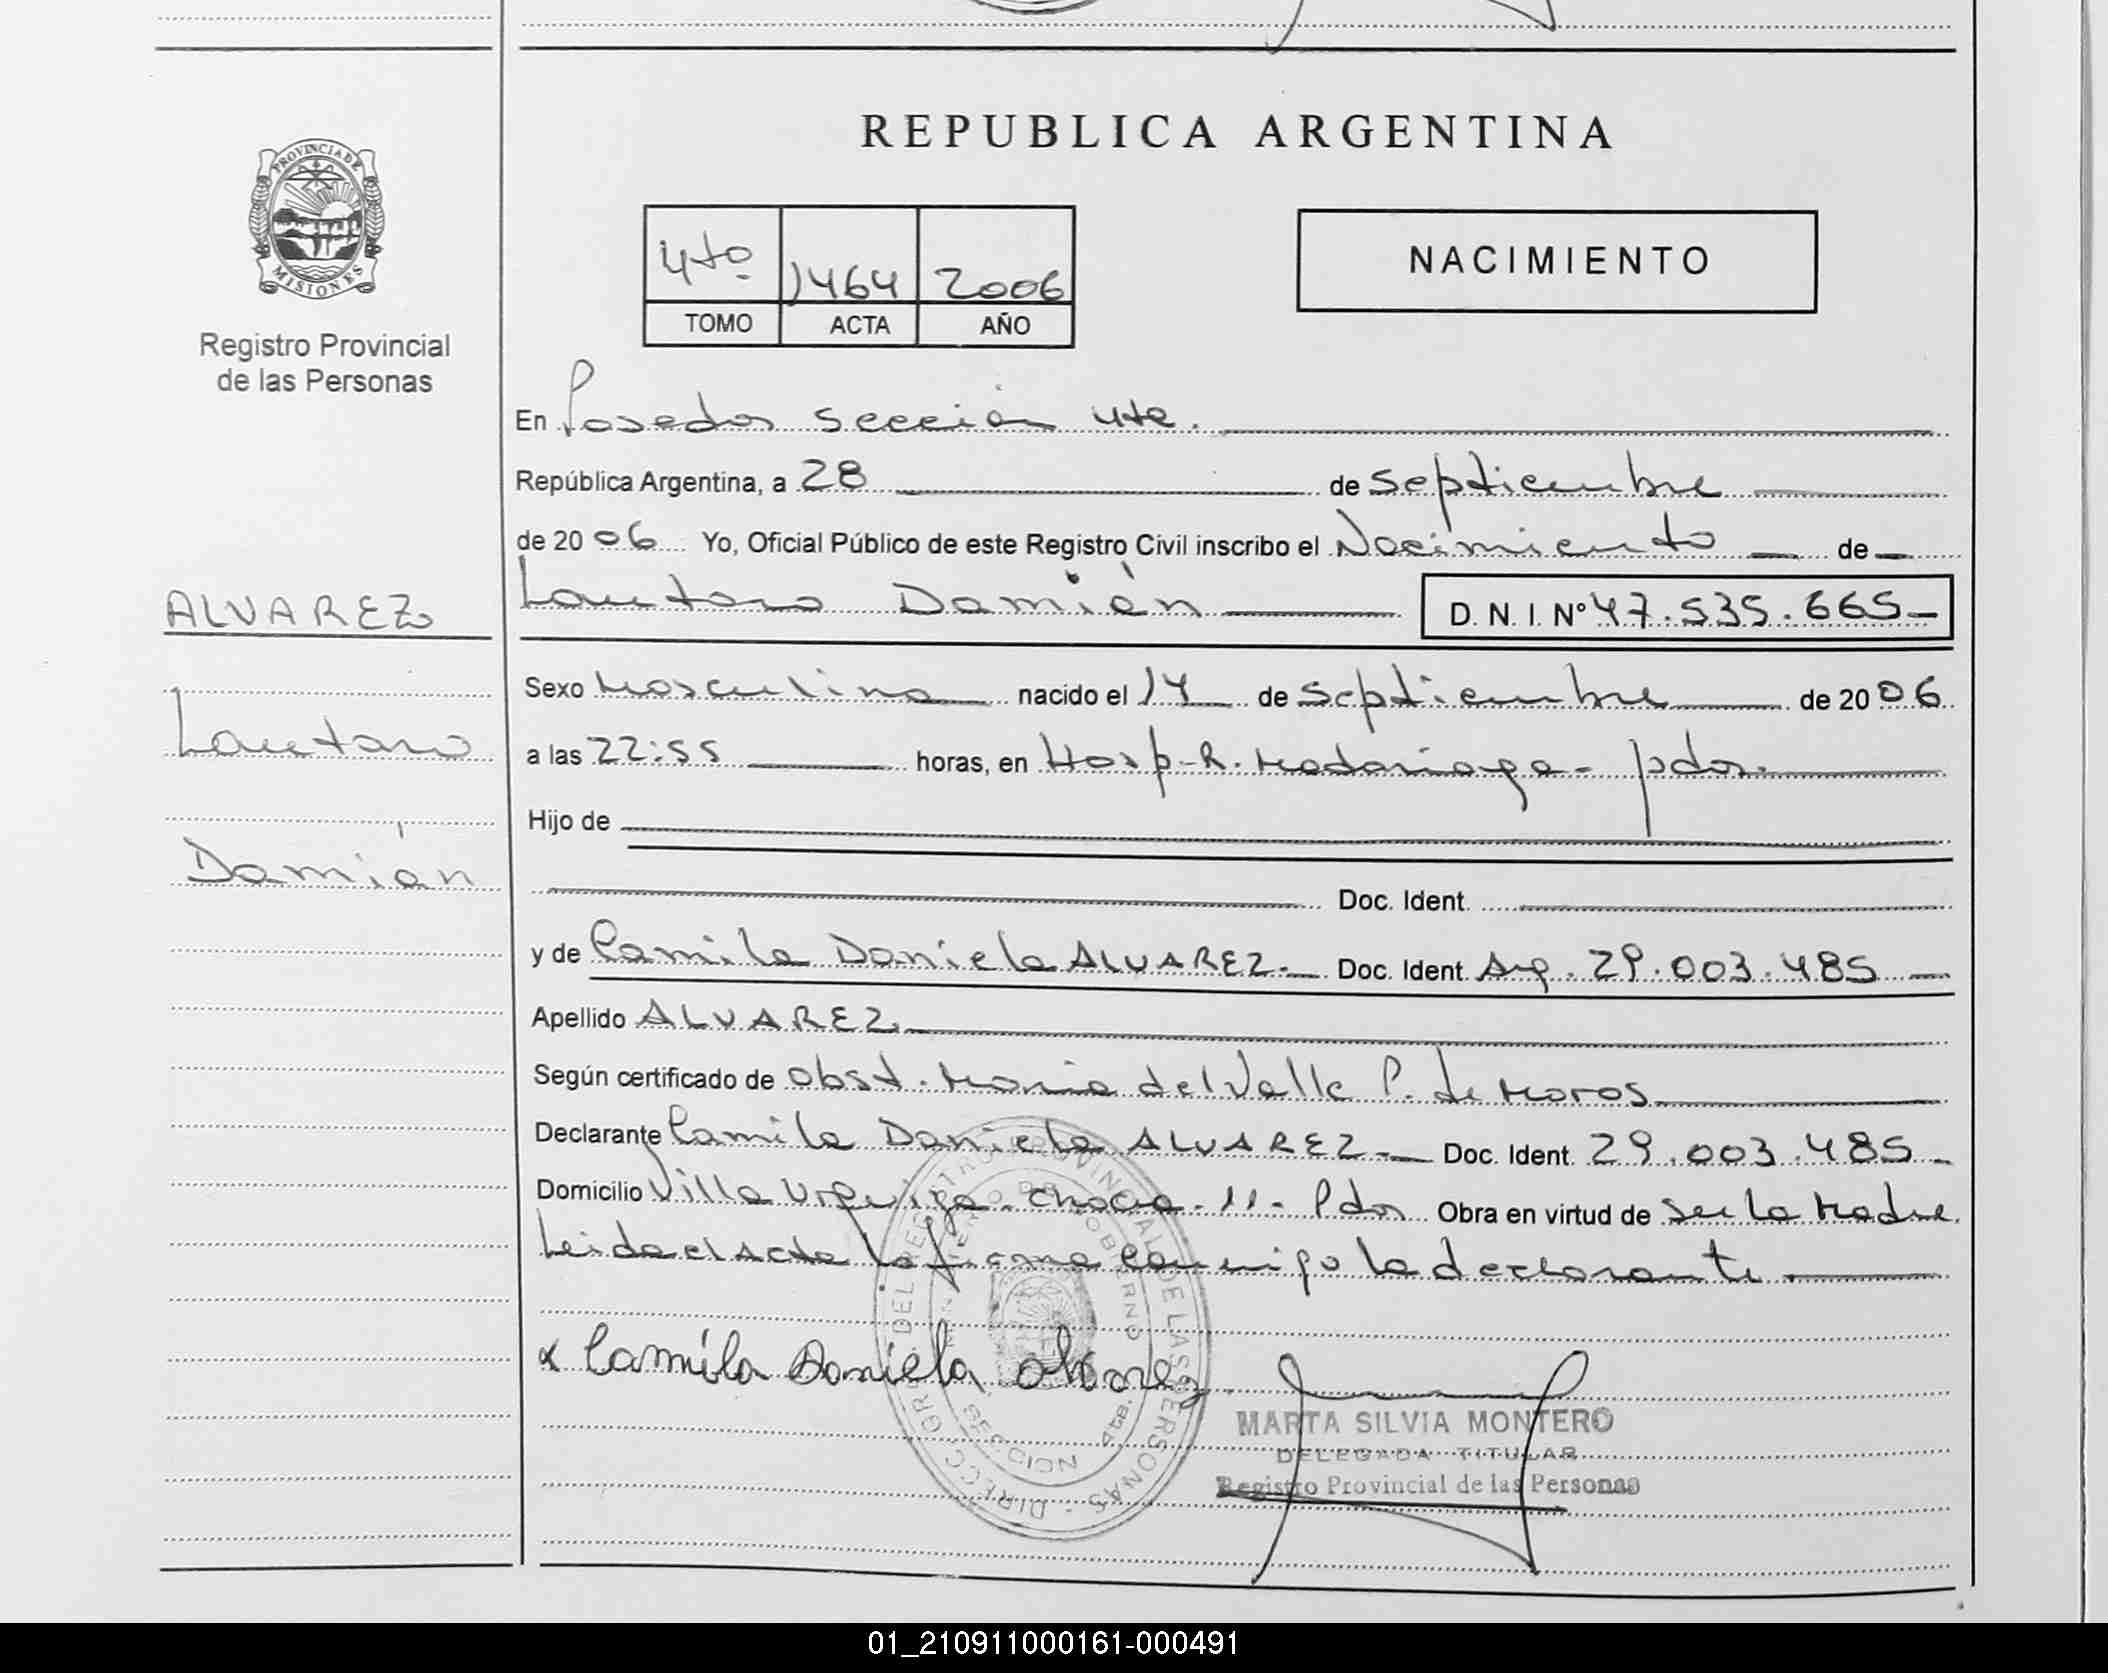 PROVINCIA DE
MISIONES
Registro Provincial
de las Personas
ALVAREZ
Lautaro
Damián
REPUBLICA ARGENTINA
4to 1464 2006
TOMO ACTA AÑO
NACIMIENTO
En Posadas sección 4ta.
República Argentina, a 28 de septiembre
de 2006 Yo, Oficial Público de este Registro Civil inscribo el Nacimiento de
Lautaro Damián D. N. I. Nº 47.535.665
Sexo Masculino nacido el 14 de septiembre de 2006
a las 22:55 horas, en Hosp. R. Madariaga - pdas.
Hijo de
Doc. Ident.
y de Camila Daniela ALVAREZ. Doc. Ident. Arg. 29.003.485
Apellido ALVAREZ
Según certificado de obst. Maria del Valle P. de Moros
Declarante Camila Daniela ALVAREZ. Doc. Ident. 29.003.485
Domicilio Villa Urquiza. chacra. 11 - Pdas Obra en virtud de ser la Madre.
Leida el Acta la firma conmigo la declarante.
x Camila Daniela Alvarez
MARTA SILVIA MONTERO
DELEGADA TITULAR
Registro Provincial de las Personas
01_210911000161-000491